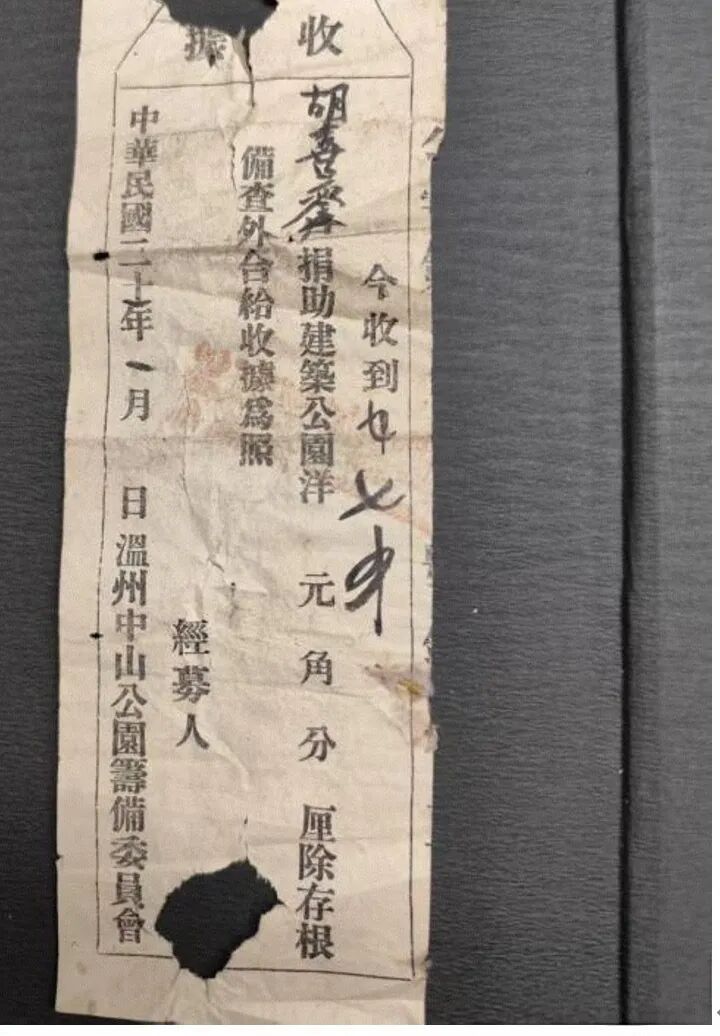 收據
今收到
胡喜捐助建築公園洋 元角分厘除存根
備查外合給收據爲照
經募人
中華民國二十年一月 日溫州中山公園籌備委員會